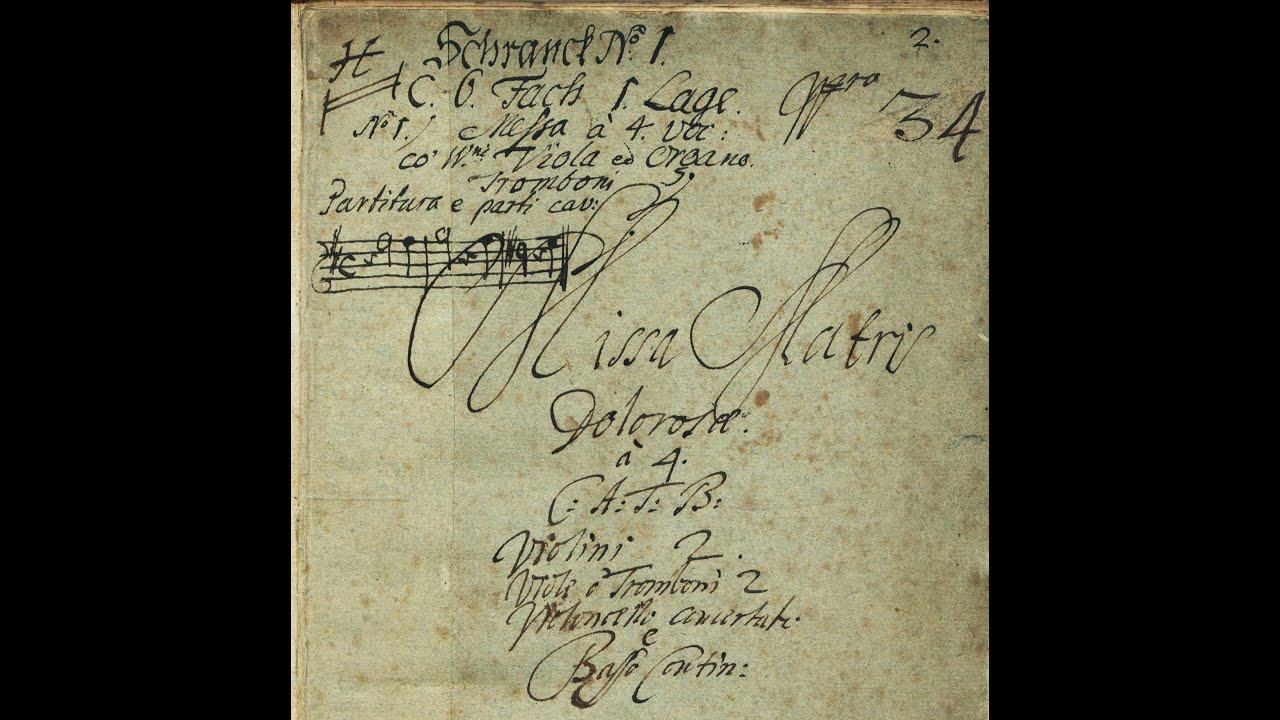 H Schranck No. 1. 2.
C. 6. Fach 1. Lage.
34
No 1.) Messa à 4. voc:
co' Wni Viola ed Organo.
Tromboni 3.
Partitura e parti cav:
Missa Matris
Dolorosæ.
à 4.
C: A: T: B:
Violini 2.
Viole ò Tromboni 2
Violoncello concertati
e
Basso Contin: